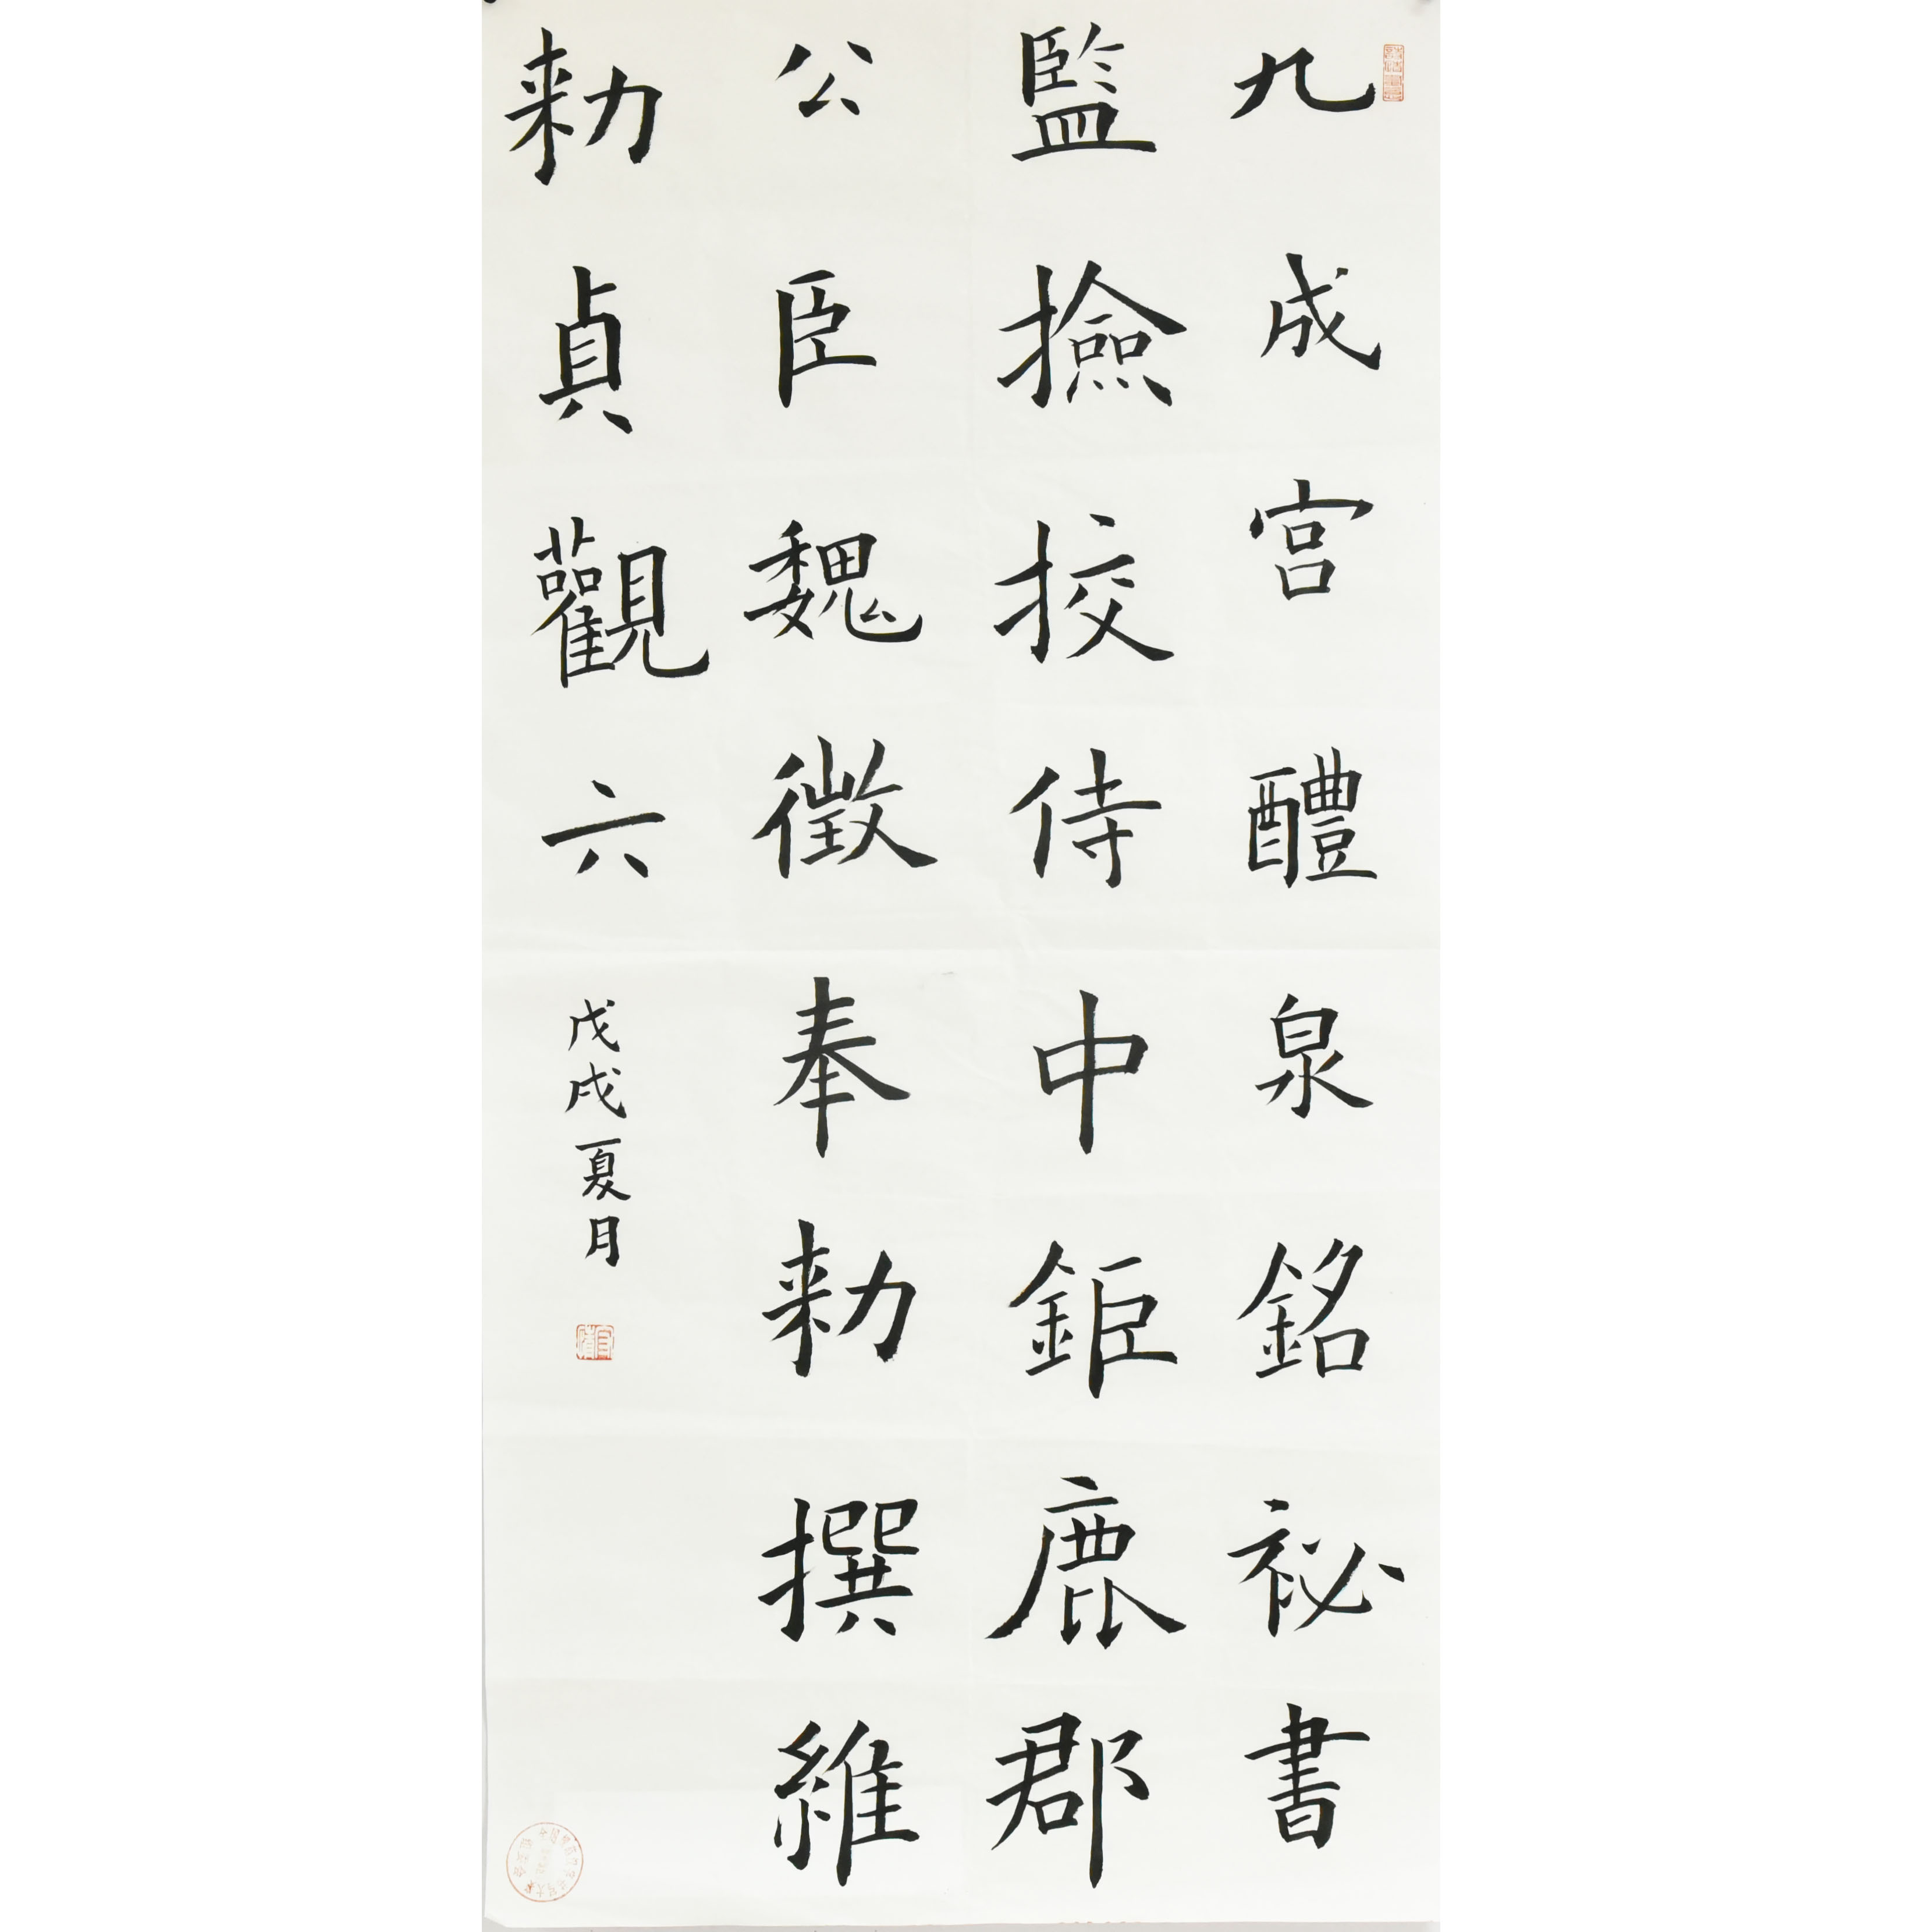 九成宮醴泉銘祕書
監撿挍侍中鉅鹿郡
公臣魏徵奉勑撰維
勑貞觀六
戊戌夏月